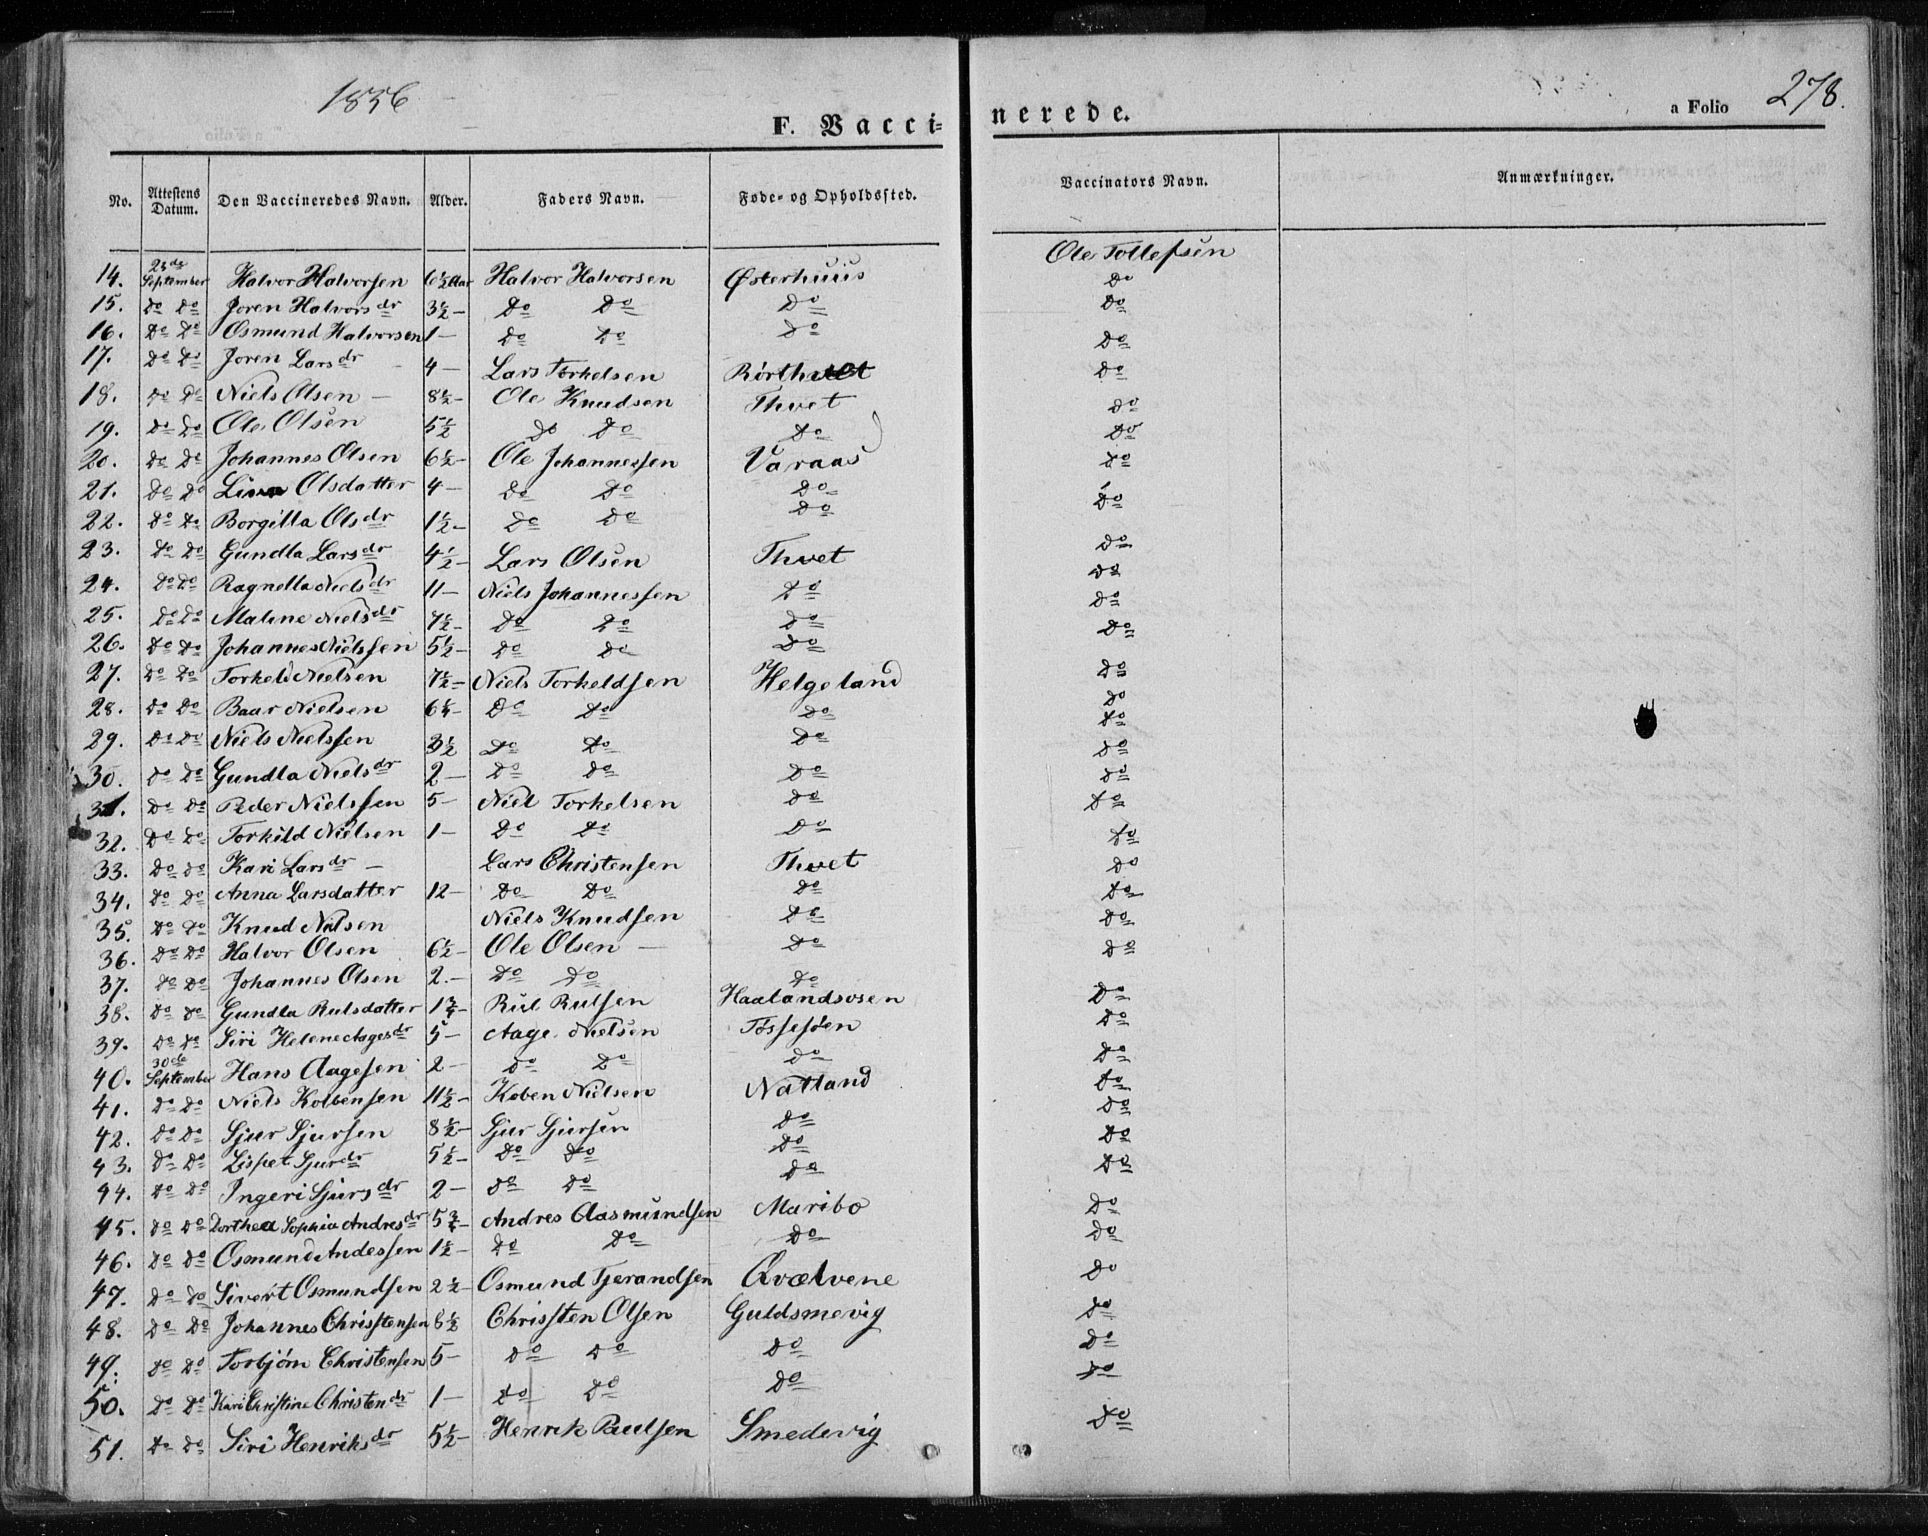 1856
F. Vaccinerede.
a Folio 278.
No. Attestens Datum. Den Vaccineredes Navn. Alder. Faders Navn. Føde- og Opholdssted. Vaccinators Navn. Anmærkninger.
14. September Halvor Halvorsen 6½ Aar Halvor Halvorsen Østerhuus Ole Tollefsen
15. Do Do Joren Halvorsdr 3½ – Do Do Do Do
16. Do Do Osmund Halvorsen 1 – Do Do Do Do
17. Do Do Joren Larsdr – 4 – Lars Torkelsen Rörthvet Do
18. Do Do Niels Olsen – 8½ – Ole Knudsen Thvet Do
19. Do Do Ole Olsen 5½ Do Do Do Do
20. Do Do Johannes Olsen 6½ – Ole Johannessen Varaas Do
21. Do Do Lina Olsdatter 4 – Do Do Do Do
22. Do Do Borgilla Olsdr 1½ – Do Do Do Do
23. Do Do Gundla Larsdr 4½ – Lars Olsen Thvet Do
24. Do Do Ragnella Nielsdr 11 – Niels Johannessen Do Do
25. Do Do Maline Nielsdr 7½ – Do Do Do Do
26. Do Do Johannes Nielssen 5½ – Do Do Do Do
27. Do Do Torkeld Nielsen 7½ – Niels Torkeldsen Helgeland Do
28. Do Do Baar Nielsen Do Do Do Do
29. Do Do Niels Nielssen 3½ Do Do Do Do
30. Do Do Gundla Nielsdr 2 – Do Do Do Do
31. Do Do Peder Nielssen 5 – Niel Torkelsen Do Do
32. Do Do Torkild Nielsen 1 – Do Do Do Do
33. Do Do Kari Larsdr – Lars Christensen Thvet Do
34. Do Do Anna Larsdatter 12 – Do Do Do Do
35. Do Do Knud Nilsen Niels Knudsen Do Do
36. Do Do Halvor Olsen 6½ – Ole Olsen – Do Do
37. Do Do Johannes Olsen 2. – Do Do Do Do
38. Do Do Gundla Rulsdatter Rul Rulsen Haalandsosen Do
39. Do Do Siri Helene Aagesdr 5 – Aage Nielsen Tössesöen Do
40. 30de September Hans Aagesen 2 – Do Do Do Do
41. Do Do Niels Kolbensen 11½ – Koben Nielsen Natland Do
42. Do Do Sjur Sjursen 8½ – Sjur Sjursen Do Do
43. Do Do Lispet Sjurdr 5½ – Do Do Do Do
44. Do Do Ingeri Sjursdr 2 – Do Do Do Do
45. Do Do Dorthea Sophia Andresdr 5¾ – Andres Aasmundsen Maribo Do
46. Do Do Osmund Andessen 1½ – Do Do Do Do
47. Do Do Sivert Osmundsen 2½ – Osmund Tjerandsen Qvælvene Do
48. Do Do Johannes Chrisstensen 8½ Chrissten Olsen Guldsmevig Do
49. Do Do Torbjörn Christensen 5 – Do Do Do Do
50. Do Do Kari Christine Christendr 1 – Do Do Do Do
51. Do Do Siri Henriksdr 5½ – Henrik Paulsen Smedevig Do